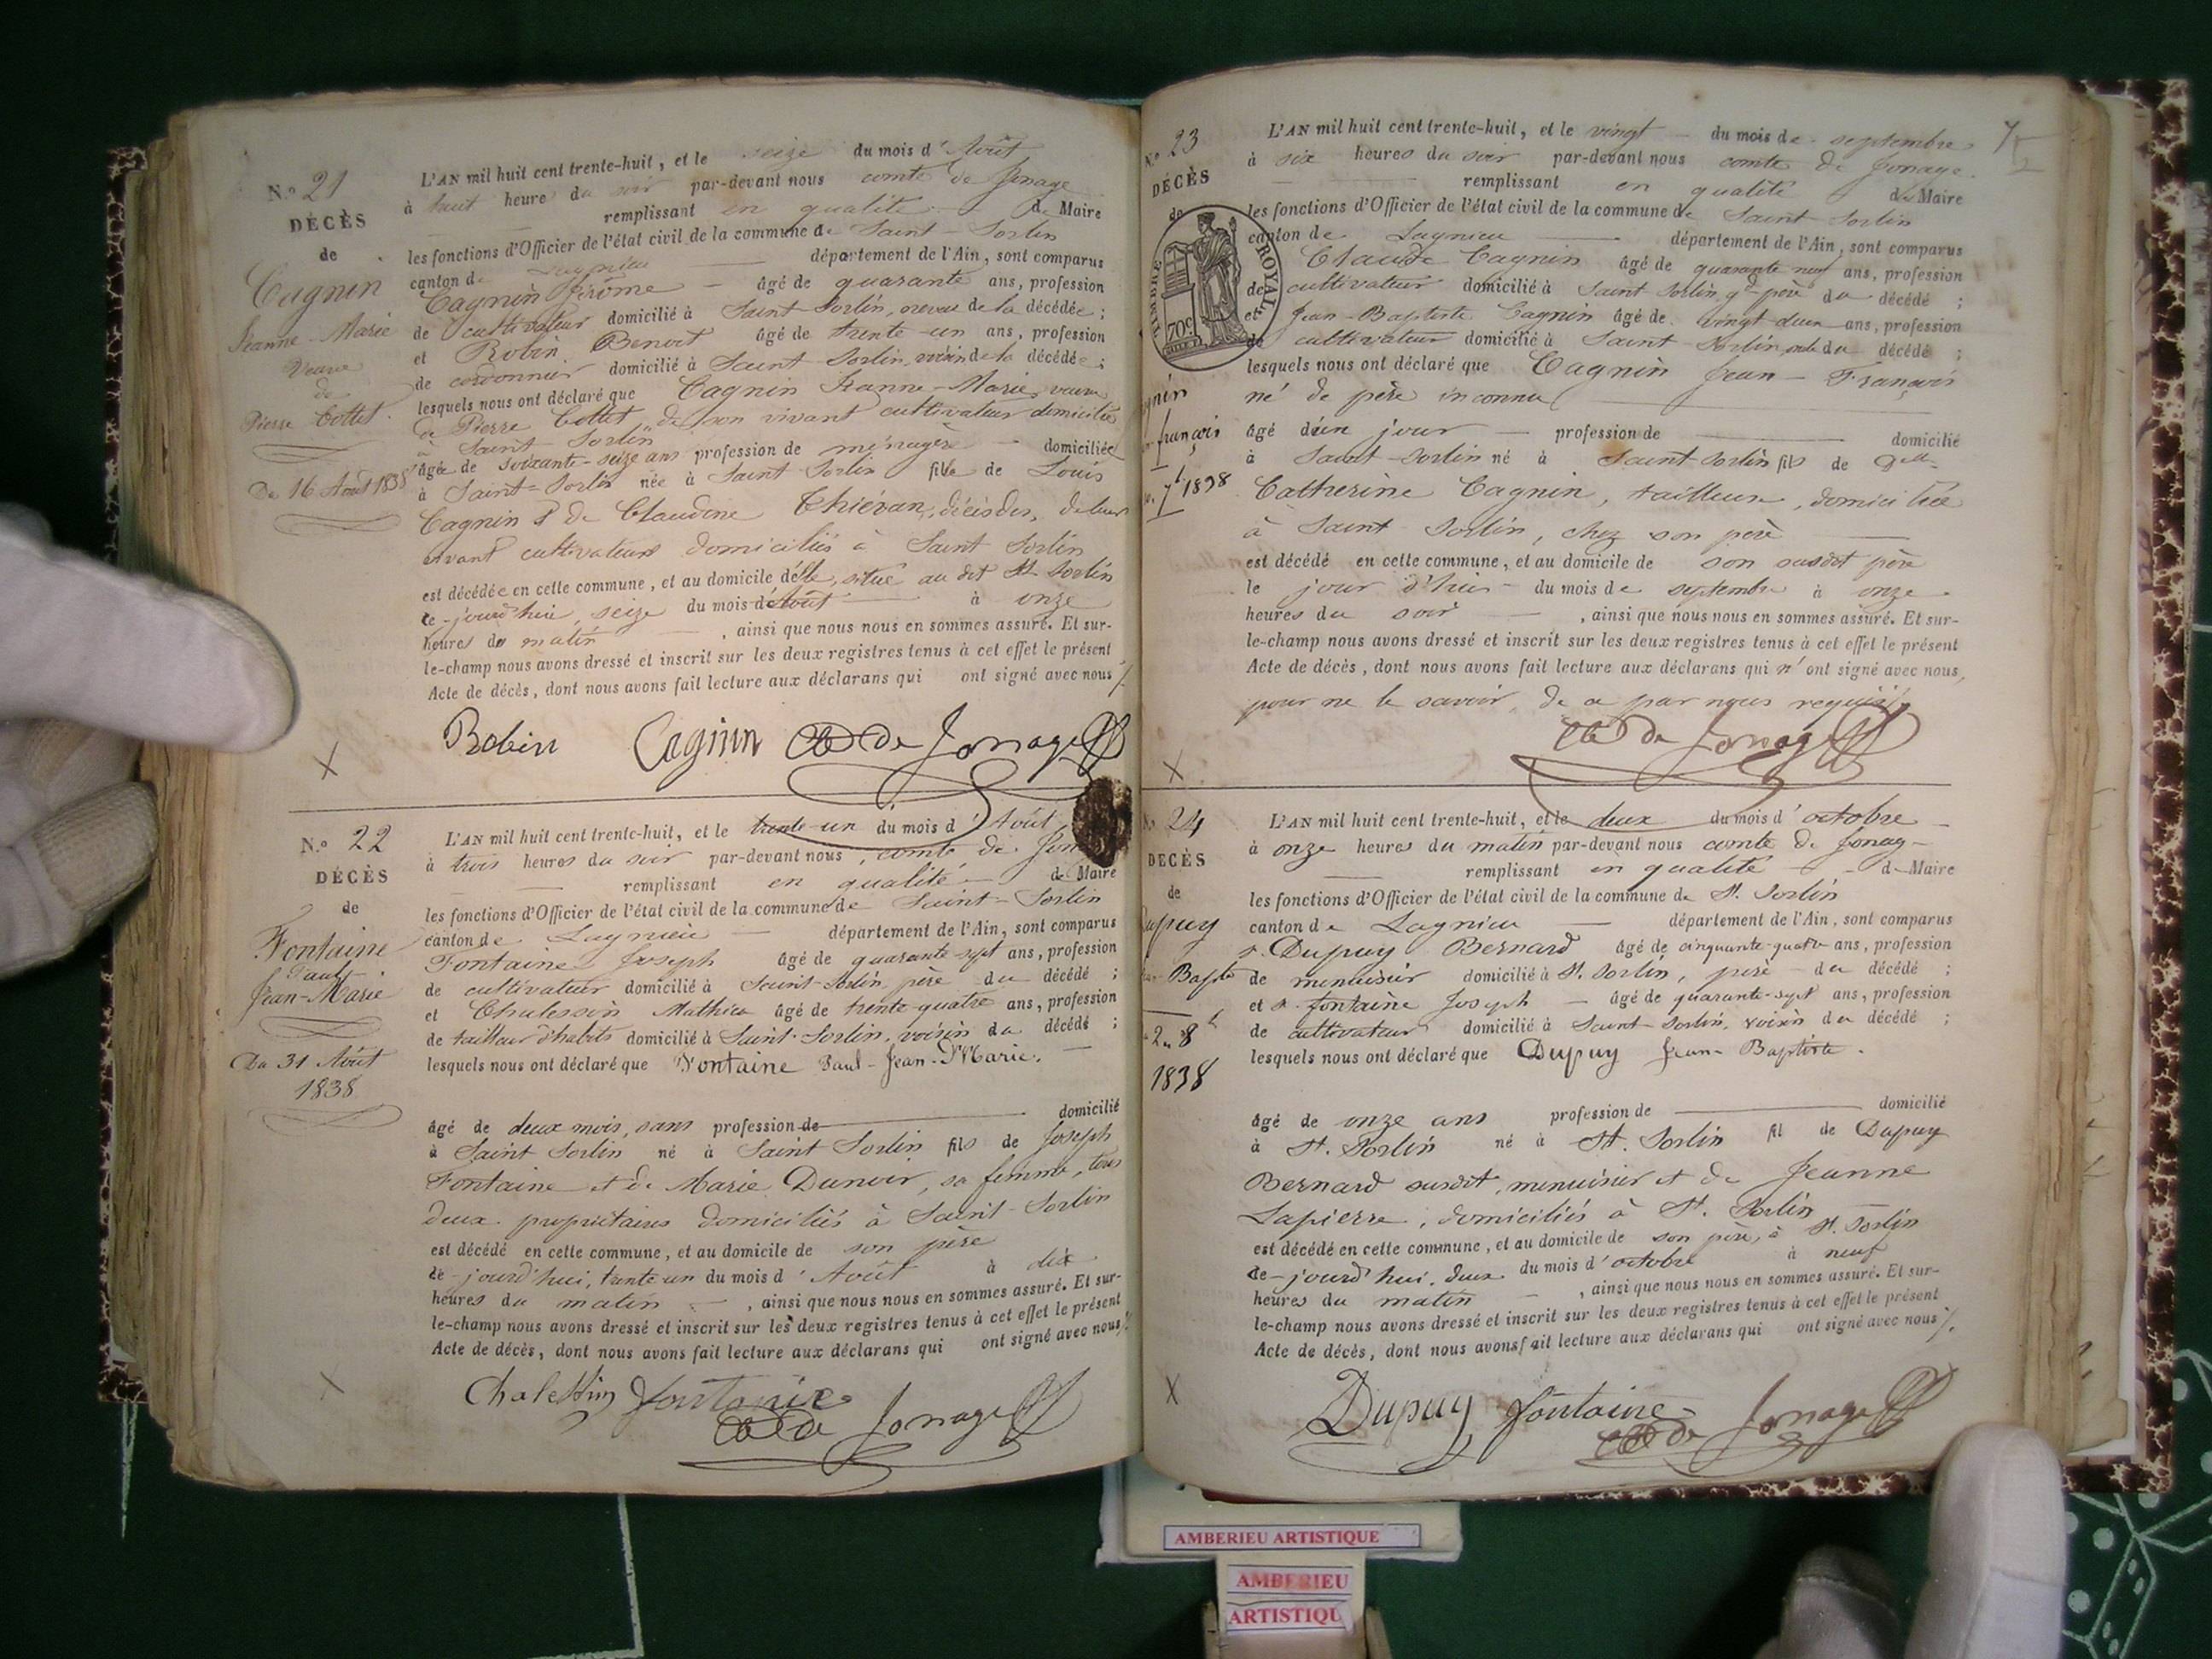 N.° 21
DÉCÈS
de
Cagnin
Jeanne-Marie
Veuve
de
Pierre Cottet.
Du 16 Août 1838
L'AN mil huit cent trente-huit, et le seize du mois d'Août
à huit heure du soir par-devant nous comte de Jonage
remplissant en qualité de Maire
les fonctions d'Officier de l'état civil de la commune de Saint-Sorlin
canton de Lagnieu département de l'Ain, sont comparus
Cagnin Jérôme âgé de quarante ans, profession
de cultivateur domicilié à Saint-Sorlin, neveu de la décédée;
et Robin Benoit âgé de trente-un ans, profession
de cordonnier domicilié à Saint-Sorlin, voisin de la décédée;
lesquels nous ont déclaré que Cagnin Jeanne-Marie, veuve
de Pierre Cottet de son vivant cultivateur domicilié
à Saint Sorlin
âgée de soixante-seize ans profession de ménagère domiciliée
à Saint-Sorlin née à Saint-Sorlin fille de Louis
Cagnin & de Claudine Thiévan, décédés, de leur
vivant cultivateurs domiciliés à Saint Sorlin
est décédée en cette commune, et au domicile d'elle, situé au dit St. Sorlin
ce-jourd'hui, seize du mois d'Août à onze
heures du matin, ainsi que nous nous en sommes assuré. Et sur-
le-champ nous avons dressé et inscrit sur les deux registres tenus à cet effet le présent
Acte de décès, dont nous avons fait lecture aux déclarans qui ont signé avec nous
Robin Cagnin Cte de Jonage
N.° 22
DÉCÈS
de
Fontaine
Paul
Jean-Marie
Du 31 Août
1838
L'AN mil huit cent trente-huit, et le trente-un du mois d'Août
à trois heures du soir par-devant nous, comte de Jon
remplissant en qualité de Maire
les fonctions d'Officier de l'état civil de la commune de Saint-Sorlin
canton de Lagnieu département de l'Ain, sont comparus
Fontaine Joseph âgé de quarante-sept ans, profession
de cultivateur domicilié à Saint-Sorlin, père du décédé;
et Chalessin Mathieu âgé de trente-quatre ans, profession
de tailleur d'habits domicilié à Saint-Sorlin, voisin du décédé;
lesquels nous ont déclaré que Fontaine Paul-Jean-Marie.
âgé de deux mois, sans profession de domicilié
à Saint Sorlin né à Saint Sorlin fils de Joseph
Fontaine et de Marie Dunoir, sa femme, tous
deux propriétaires domiciliés à Saint-Sorlin
est décédé en cette commune, et au domicile de son père
ce-jourd'hui, trente-un du mois d'Août à dix
heures du matin, ainsi que nous nous en sommes assuré. Et sur-
le-champ nous avons dressé et inscrit sur les deux registres tenus à cet effet le présent
Acte de décès, dont nous avons fait lecture aux déclarans qui ont signé avec nous
Chalessin fontaine
Cte de Jonage
N.° 23
DÉCÈS
de
TIMBRE ROYAL
70c
gnin
françois
7b 1838
L'AN mil huit cent trente-huit, et le vingt du mois de septembre
à six heures du soir par-devant nous comte de Jonage.
remplissant en qualité de Maire
les fonctions d'Officier de l'état civil de la commune de Saint-Sorlin
canton de Lagnieu département de l'Ain, sont comparus
Claude Cagnin âgé de quarante neuf ans, profession
de cultivateur domicilié à Saint Sorlin, gd-père du décédé;
et Jean-Baptiste Cagnin âgé de vingt-deux ans, profession
de cultivateur domicilié à Saint-Sorlin, oncle du décédé;
lesquels nous ont déclaré que Cagnin Jean-François
né de père inconnu
âgé d'un jour profession de domicilié
à Saint-Sorlin né à Saint-Sorlin fils de Delle
Catherine Cagnin, tailleuse, domiciliée
à Saint Sorlin, chez son père
est décédé en cette commune, et au domicile de son susdit père
le jour d'hier du mois de septembre à onze
heures du soir, ainsi que nous nous en sommes assuré. Et sur-
le-champ nous avons dressé et inscrit sur les deux registres tenus à cet effet le présent
Acte de décès, dont nous avons fait lecture aux déclarans qui n'ont signé avec nous,
pour ne le savoir, de ce par nous requis.
Cte de Jonage
N° 24
DÉCÈS
de
Dupuy
Baptte
1838
L'AN mil huit cent trente-huit, et le deux du mois d'octobre
à onze heures du matin par-devant nous comte de Jonage
remplissant en qualité de Maire
les fonctions d'Officier de l'état civil de la commune de St. Sorlin
canton de Lagnieu département de l'Ain, sont comparus
Dupuy Bernard âgé de cinquante-quatre ans, profession
de menuisier domicilié à St. Sorlin, père du décédé;
et fontaine Joseph âgé de quarante-sept ans, profession
de cultivateur domicilié à Saint-Sorlin, voisin du décédé;
lesquels nous ont déclaré que Dupuy Jean-Baptiste.
âgé de onze ans profession de domicilié
à St. Sorlin né à St. Sorlin fil de Dupuy
Bernard susdit, menuisier et de Jeanne
Lapierre, domiciliés à St. Sorlin
est décédé en cette commune, et au domicile de son père, à St. Sorlin
ce-jourd'hui, deux du mois d'octobre à neuf
heures du matin, ainsi que nous nous en sommes assuré. Et sur-
le-champ nous avons dressé et inscrit sur les deux registres tenus à cet effet le présent
Acte de décès, dont nous avons fait lecture aux déclarans qui ont signé avec nous
Dupuy fontaine
Cte de Jonage
AMBERIEU ARTISTIQUE
AMBERIEU
ARTISTIQU